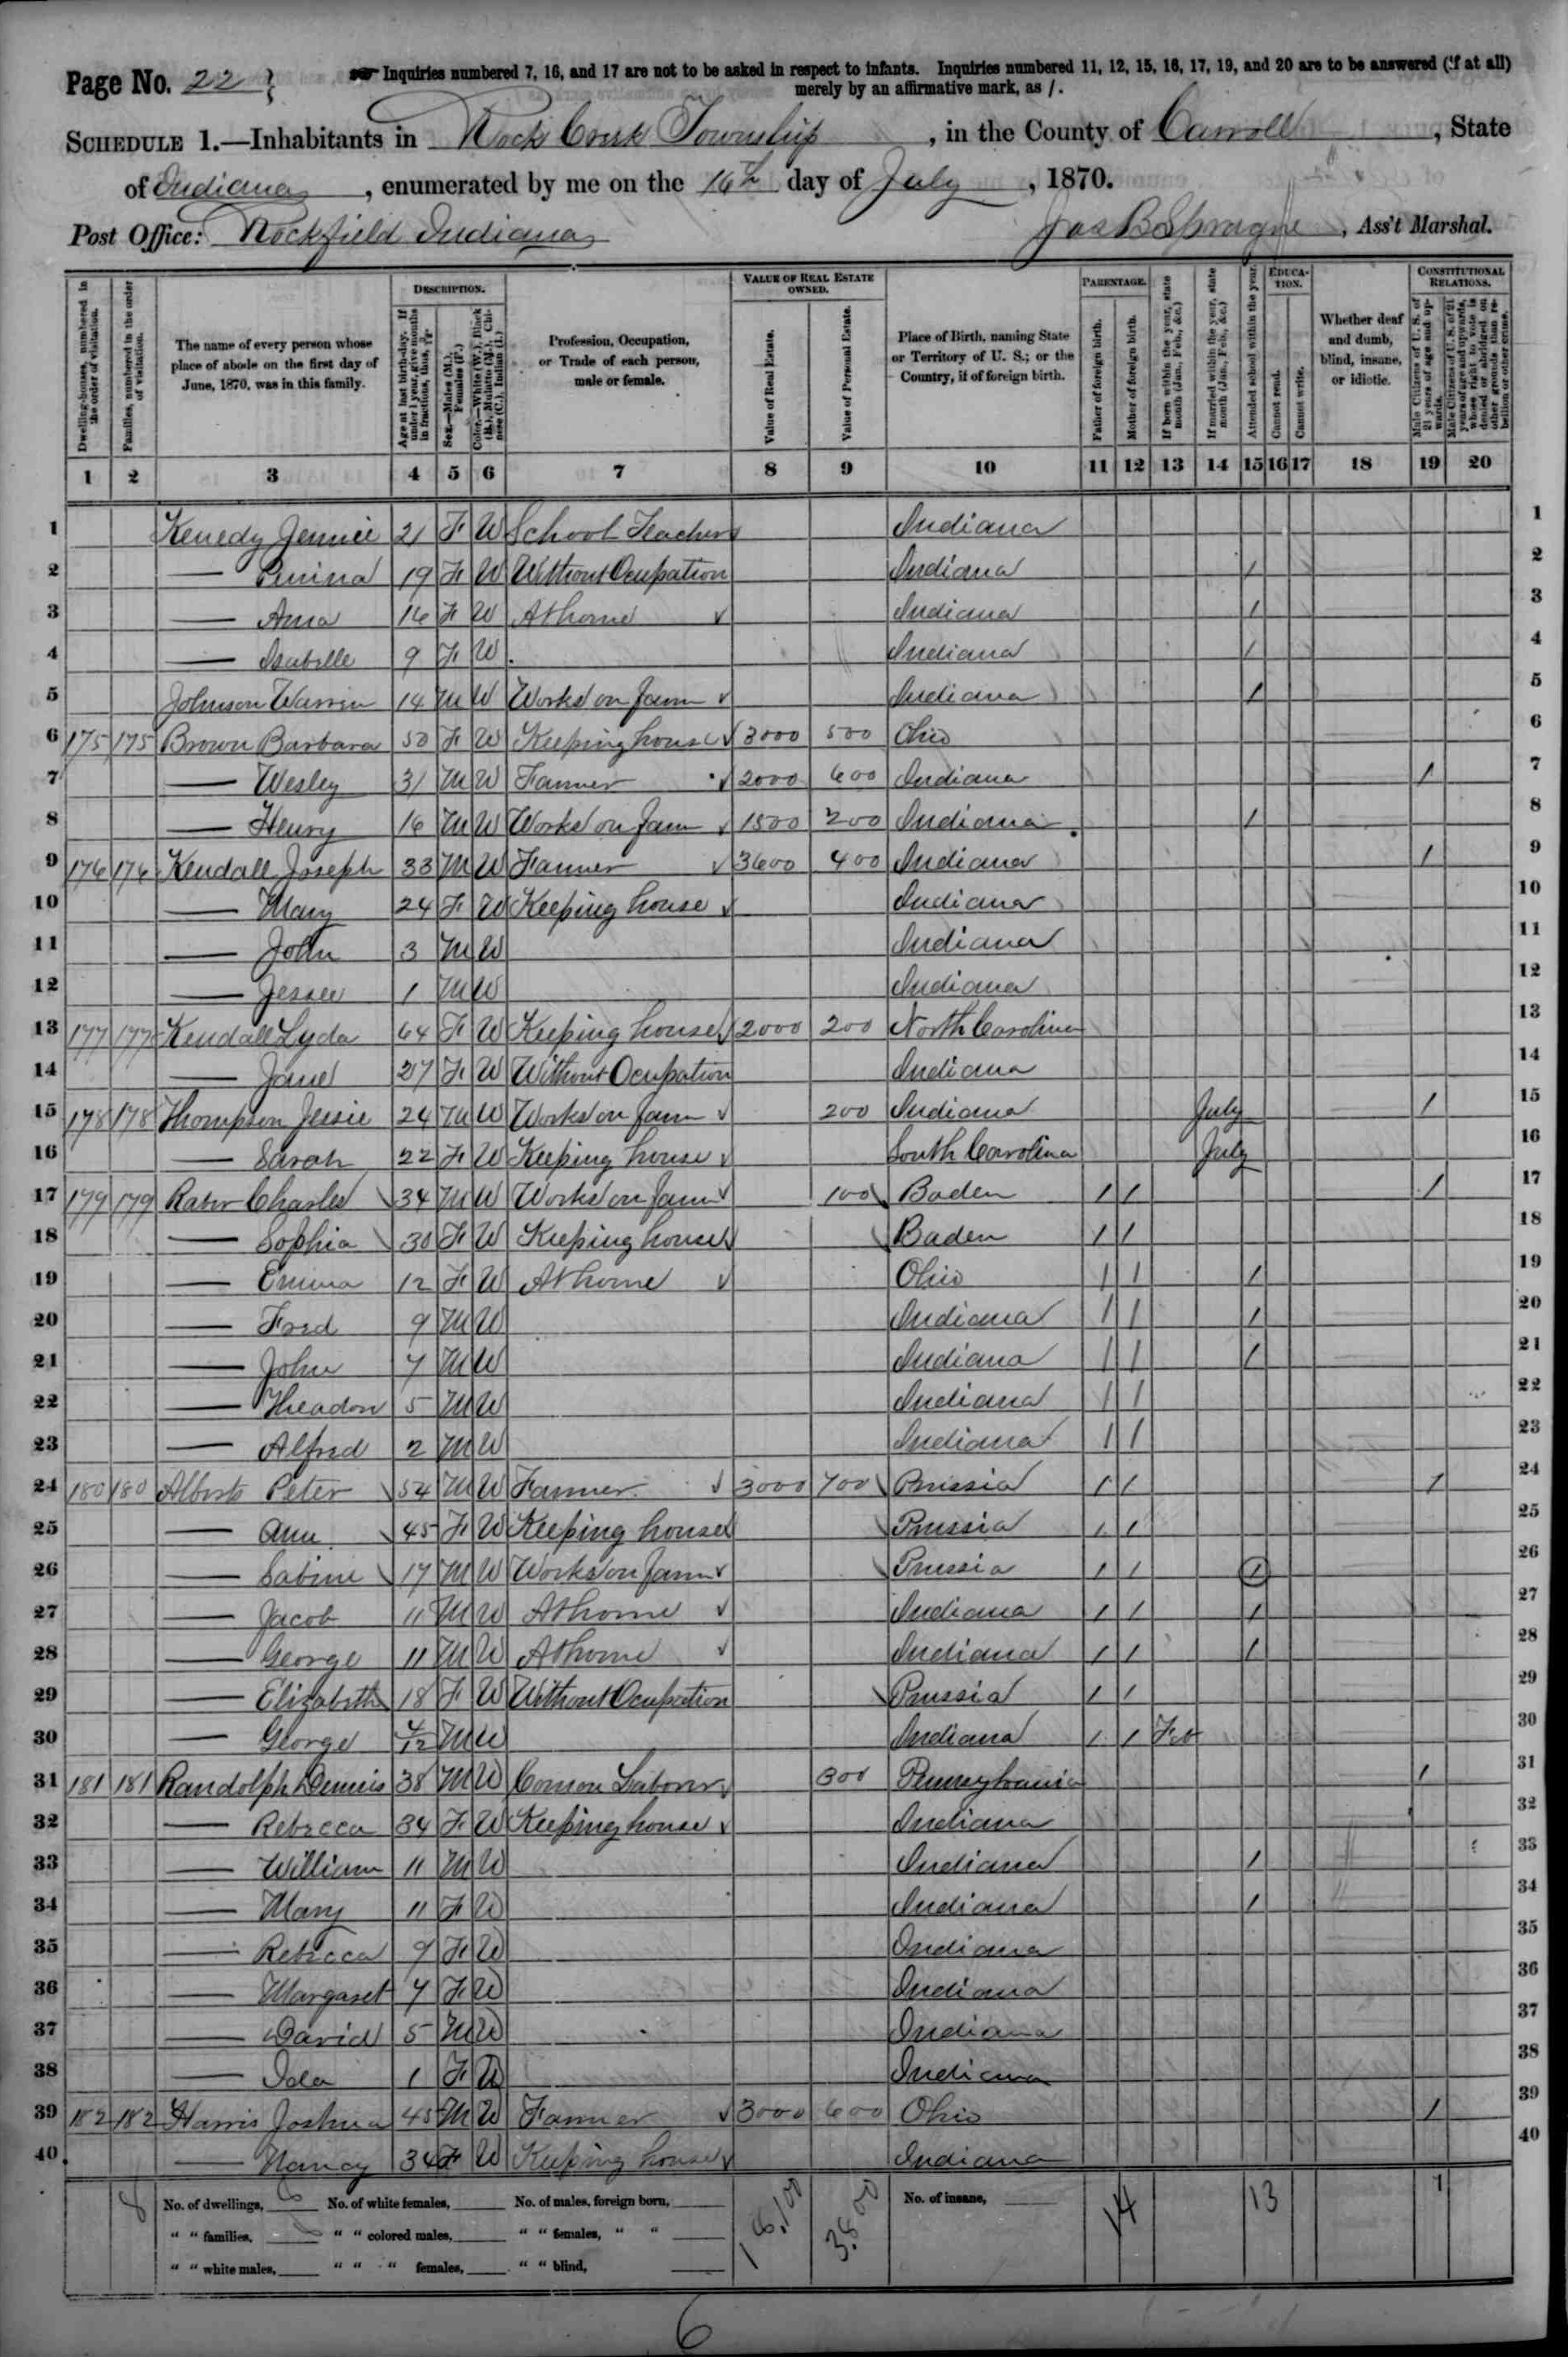 Page No. 22
Inquiries numbered 7, 16, and 17 are not to be asked in respect to infants. Inquiries numbered 11, 12, 15, 16, 17, 19, and 20 are to be answered (if at all)
merely by an affirmative mark, as /.
SCHEDULE 1.—Inhabitants in Rock Creek Township, in the County of Carroll, State
of Indiana, enumerated by me on the 16th day of July, 1870.
Post Office: Rockfield Indiana Jas B Sprague, Ass't Marshal.
Dwelling-houses, numbered in the order of visitation.
Families, numbered in the order of visitation.
The name of every person whose place of abode on the first day of June, 1870, was in this family.
DESCRIPTION.
Age at last birth-day. If under 1 year, give months in fractions, thus,
Sex.—Males (M.), Females (F.)
Color.—White (W.), Black (B.), Mulatto (M.), Chinese (C.), Indian (I.)
Profession, Occupation, or Trade of each person, male or female.
VALUE OF REAL ESTATE OWNED.
Value of Real Estate.
Value of Personal Estate.
Place of Birth, naming State or Territory of U. S.; or the Country, if of foreign birth.
PARENTAGE.
Father of foreign birth.
Mother of foreign birth.
If born within the year, state month (Jan., Feb., &c.)
If married within the year, state month (Jan., Feb., &c.)
Attended school within the year.
EDUCATION.
Cannot read.
Cannot write.
Whether deaf and dumb, blind, insane, or idiotic.
CONSTITUTIONAL RELATIONS.
Male Citizens of U. S. of 21 years of age and upwards.
Male Citizens of U. S. of 21 years of age and upwards, whose right to vote is denied or abridged on other grounds than rebellion or other crime.
1 2 3 4 5 6 7 8 9 10 11 12 13 14 15 16 17 18 19 20
1 Kenedy Jennie 21 F W School Teacher Indiana 1
2 — 19 F W Without Ocupation Indiana / 2
3 — Anna 16 F W At home Indiana / 3
4 — Isabelle 9 F W Indiana / 4
5 Johnson Warren 14 M W Works on farm Indiana / 5
6 175 175 Brown Barbara 50 F W Keeping house 3000 500 Ohio 6
7 — Wesley 31 M W Farmer 2000 600 Indiana / 7
8 — Henry 16 M W Works on farm 1500 200 Indiana / 8
9 176 176 Kendall Joseph 33 M W Farmer 3600 400 Indiana / 9
10 — Mary 24 F W Keeping house Indiana 10
11 — John 3 M W Indiana 11
12 — Jessee 1 M W Indiana 12
13 177 177 Kendall Lyda 64 F W Keeping house 2000 200 North Carolina 13
14 — Jane 27 F W Without Ocupation Indiana 14
15 178 178 Thompson Jessie 24 M W Works on farm 200 Indiana July / 15
16 — Sarah 22 F W Keeping house South Carolina July 16
17 179 179 Raber Charles 34 M W Works on farm 100 Baden / / / 17
18 — Sophia 30 F W Keeping house Baden / / 18
19 — Emma 12 F W At home Ohio / / / 19
20 — Fred 9 M W Indiana / / / 20
21 — John 7 M W Indiana / / / 21
22 — Theadon 5 M W Indiana / / 22
23 — Alfred 2 M W Indiana / / 23
24 180 180 Alberts Peter 54 M W Farmer 3000 700 Prussia / / / 24
25 — Ann 45 F W Keeping house Prussia / / 25
26 — Sabine 17 M W Works on farm Prussia / / / 26
27 — Jacob 11 M W At home Indiana / / / 27
28 — George 11 M W At home Indiana / / / 28
29 — Elizabeth 18 F W Without Ocupation Prussia / / 29
30 — George 4/12 M W Indiana / / Feb 30
31 181 181 Randolph Dennis 38 M W Comon Laborer 300 Pennsylvania / 31
32 — Rebecca 34 F W Keeping house Indiana 32
33 — William 11 M W Indiana / 33
34 — Mary 11 F W Indiana / 34
35 — Rebecca 9 F W Indiana 35
36 — Margaret 7 F W Indiana 36
37 — David 5 M W Indiana 37
38 — Ida 1 F W Indiana 38
39 182 182 Harris Joshua 45 M W Farmer 3000 600 Ohio / 39
40 — Nancy 34 F W Keeping house Indiana 40
8 No. of dwellings, 8 No. of white females, No. of males, foreign born, 18,100 3,800 No. of insane, 14 13 7
" " families, " " colored males, " " females, " "
" " white males, " " " females, " " blind,
6